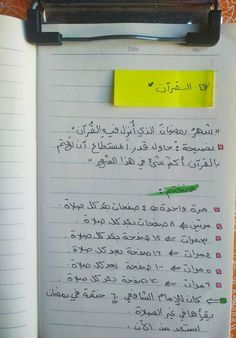 Date. No.
القرآن
"شهرُ رمضانَ الذي أُنزل فيهِ القُرآن"
نصيحة : حاول قدر المستطاع أن تهتم
بالقرآن أكثر شيء في هذا الشهر"
مرة واحدة ← ٤ صفحات بعد كل صلاة .
مرتين ← ٨ صفحات بعد كل صلاة .
٣ مرات ← ١٢ صفحة بعد كل صلاة .
٤ مرات ← ١٦ صفحة بعد كل صلاة .
مرات ← بعد كل صلاة .
٦ مرات ← صفحة بعد كل صلاة .
كان للإمام الشافعي ختمة في رمضان
يقرأها في غير الصلاة .
استعد من الآن ..